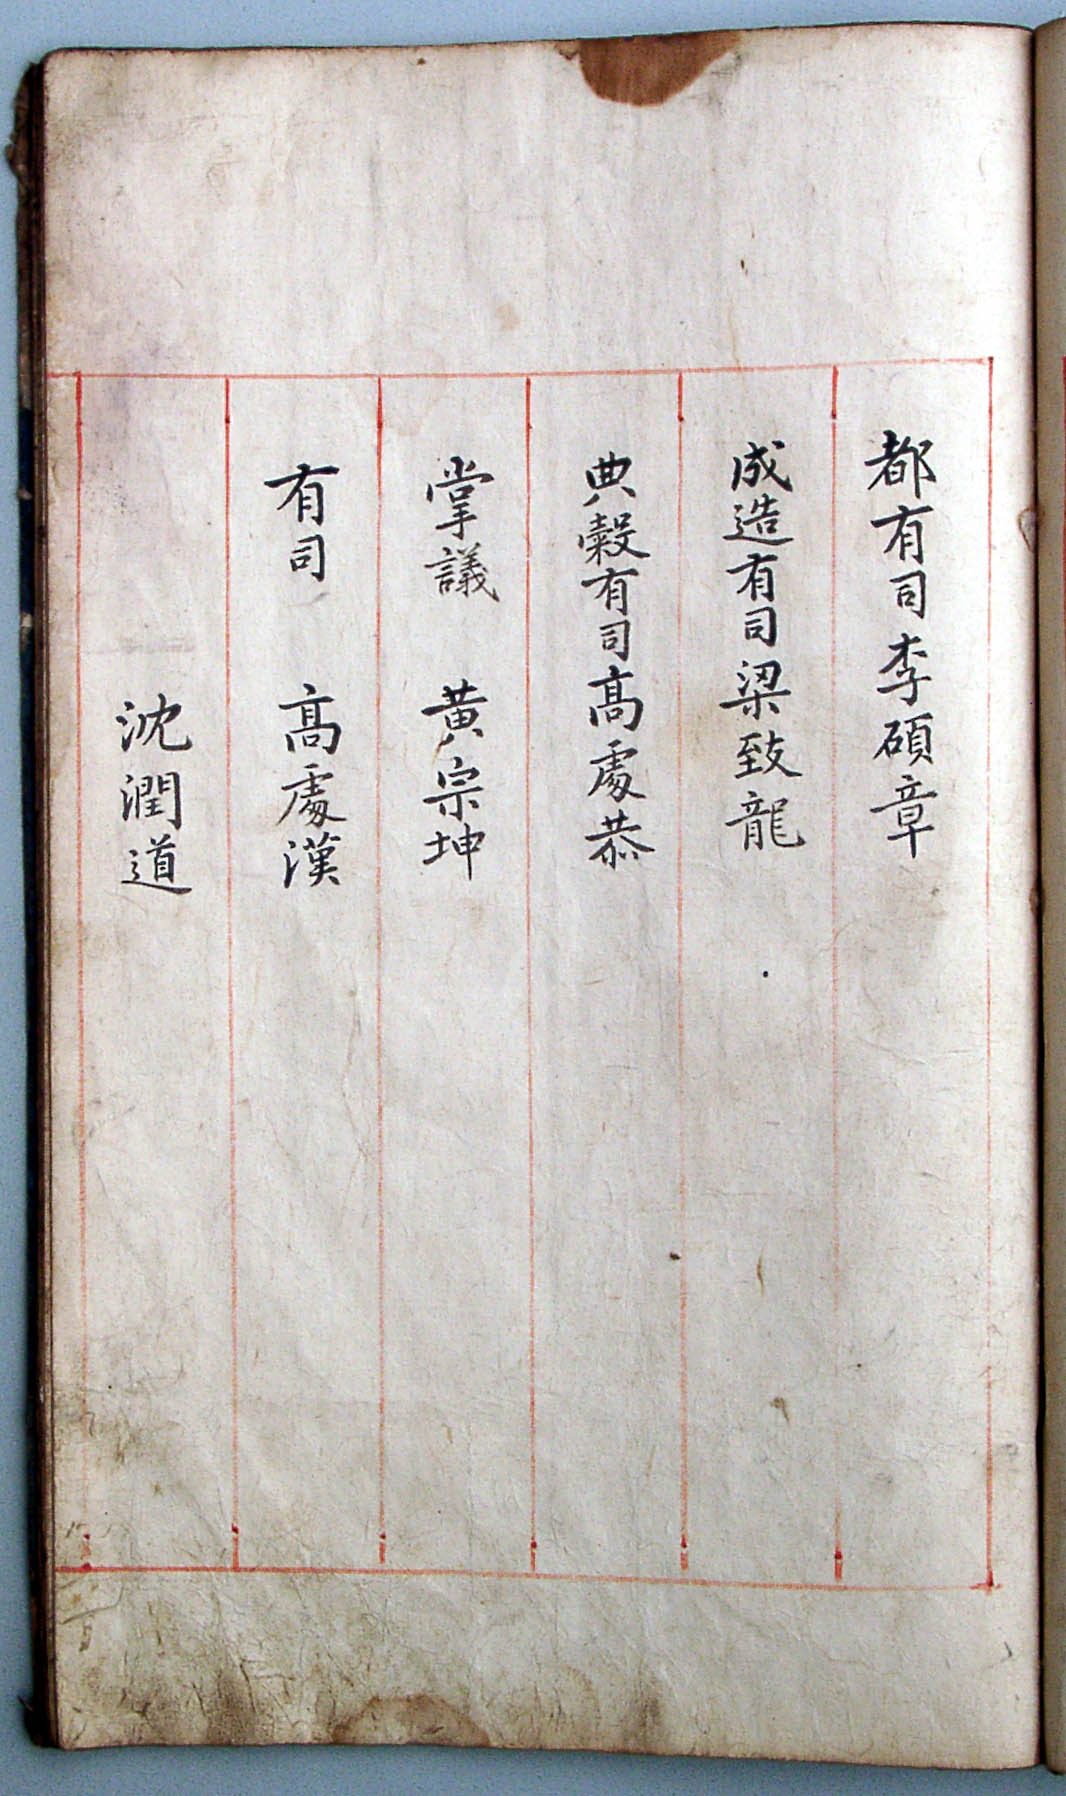 都有司李碩章
成造有司梁致龍
典穀有司高處恭
掌議 黃宗坤
有司 高處漢
沈潤道